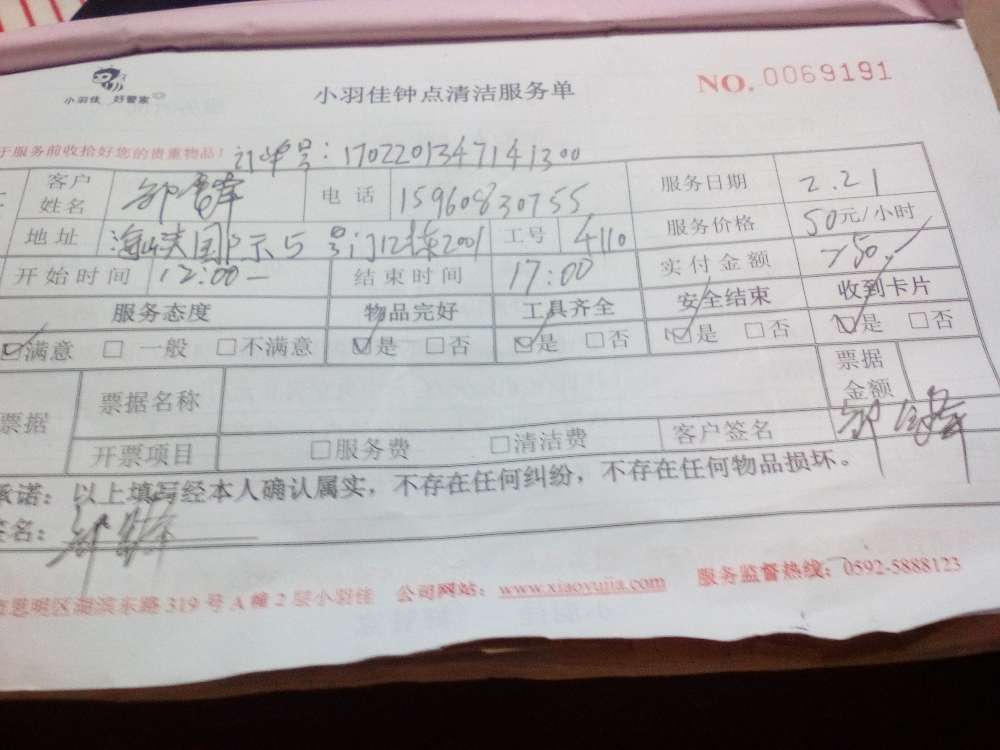 小羽佳 好管家
小羽佳钟点清洁服务单
NO. 0069191
于服务前收拾好您的贵重物品!
订单号:1702201347141300
客户姓名 电话 15960830755 服务日期 2.21
服务价格 50元/小时
地址 海峡国际5号门12栋2001 工号 4110
开始时间 12:00 结束时间 17:00 实付金额 250
服务态度 物品完好 工具齐全 安全结束 收到卡片
☑满意 □一般 □不满意 ☑是 □否 ☑是 □否 ☑是 □否 ☑是 □否
票据 票据名称 票据金额
开票项目 □服务费 □清洁费 客户签名
承诺:以上填写经本人确认属实,不存在任何纠纷,不存在任何物品损坏。
签名:
思明区湖滨东路319号A幢2层小羽佳 公司网站:www.xiaoyujia.com 服务监督热线:0592-5888123